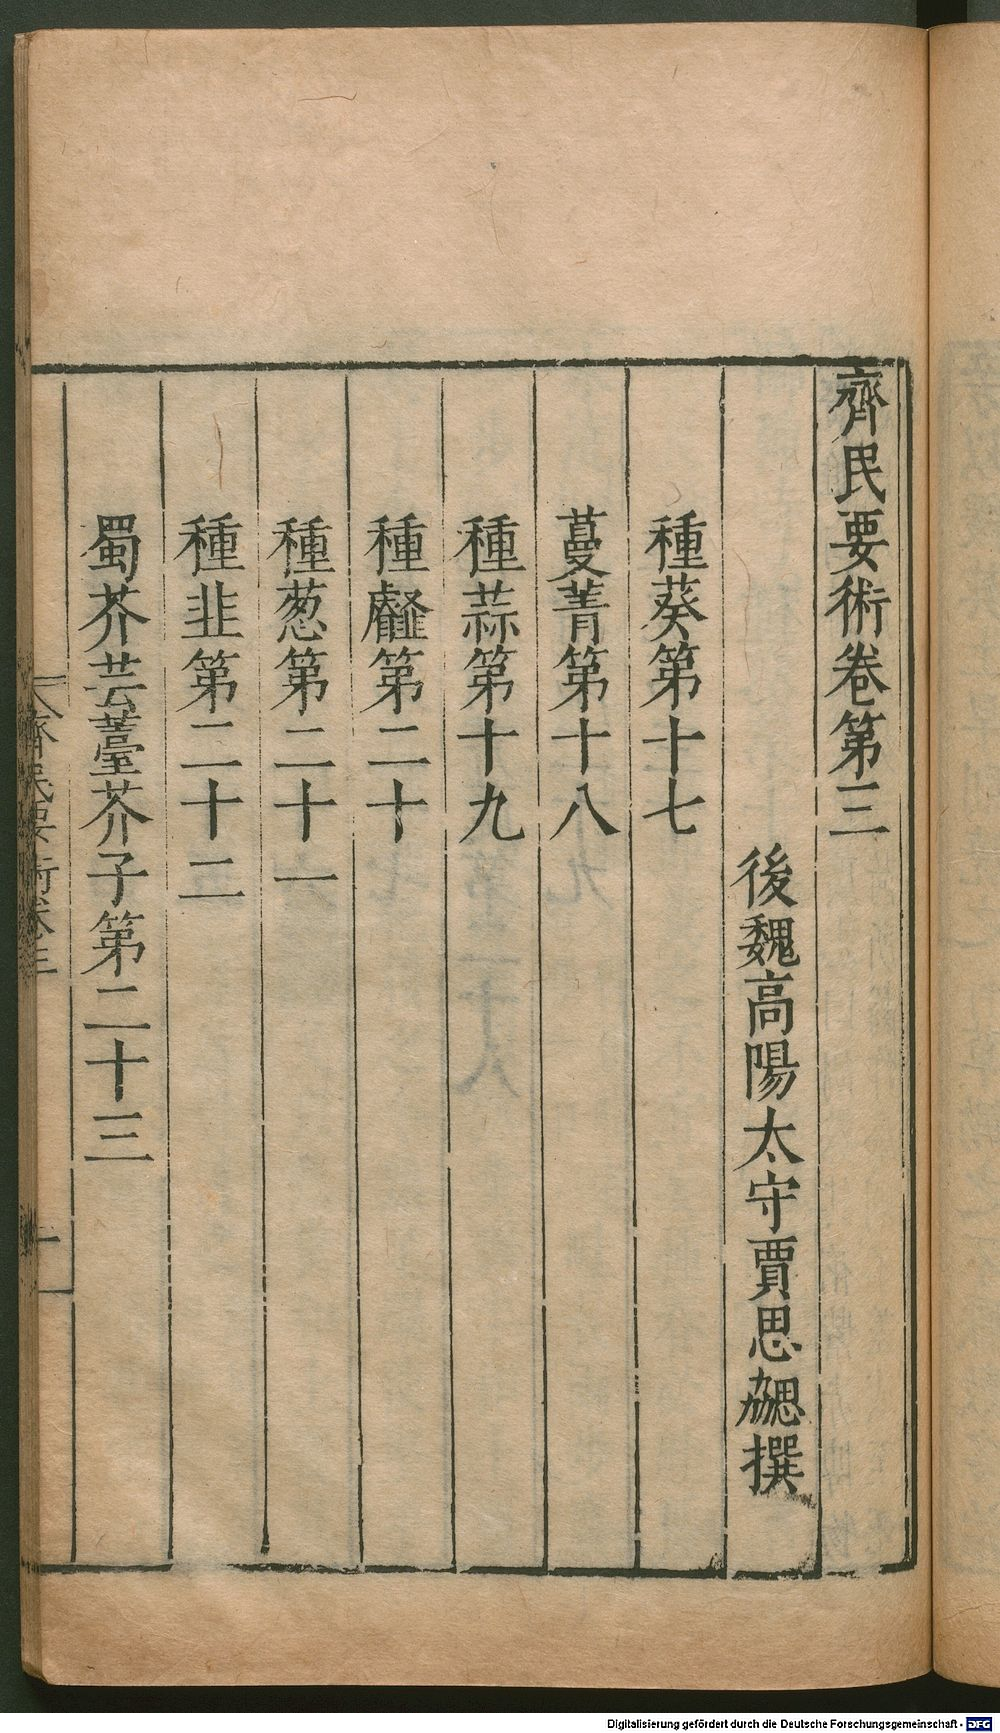 齊民要術卷第三
後魏高陽太守賈思勰撰
種葵第十七
蔓菁第十八
種蒜第十九
種䪥第二十
種葱第二十一
種韭第二十二
蜀芥芸薹芥子第二十三
齊民要術卷三
一
Digitalisierung gefördert durch die Deutsche Forschungsgemeinschaft - DFG